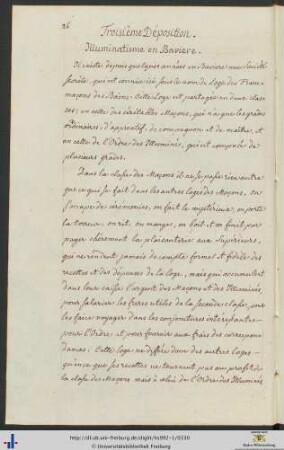 26
Troisième Déposition.
Illuminatisme en Baviere.
Il existe depuis quelques années en Baviere une Société
secrète, qui est connue ici sous le nom de Loge des Francs
maçons des Bains. Cette Loge est partagée en deux classes
ses; en celle des véritables Maçons, qui n'a que les grades
ordinaires, d'apprentif, de compagnon et de maître, et
en celle de l'Ordre des Illuminés, qui est composée de
plusieurs grades.
Dans la classe des Maçons il ne se passe rien entre
que ce qui se fait dans les autres loges des Maçons, on
s'occupe de cérémonies, on fait le mystérieux, on porte
la terreur, on rit, on mange, on boit et on finit par
payer chèrement la plaisanterie aux Supérieurs,
qui ne rendent jamais de compte formel et fidèle des
recettes et des dépenses de la loge, mais qui accumulent
dans leur caisse l'argent des Maçons et des Illuminés
pour salarier les freres utiles de la seconde classe, pour
les faire voyager dans les conjonctures intéressantes
pour l'Ordre et pour fournir aux frais des correspon
dances. Cette loge ne diffère donc des autres loges
qu'en ce que ses recettes ne tournent pas au profit de
la classe des Maçons mais à celui de l'Ordre des Illuminés
http://dl.ub.uni-freiburg.de/diglit/hs992-1/0330
© Universitätsbibliothek Freiburg